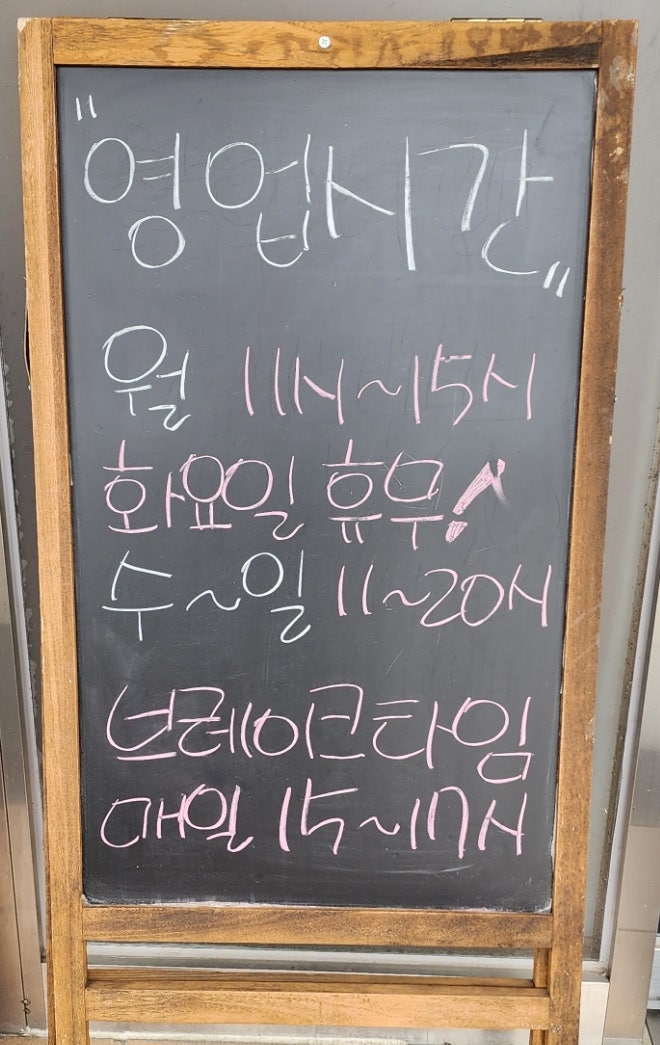 "영업시간"
월 11시~15시
화요일 휴무!
수~일 11~20시
브레이크타임
매일 15~17시